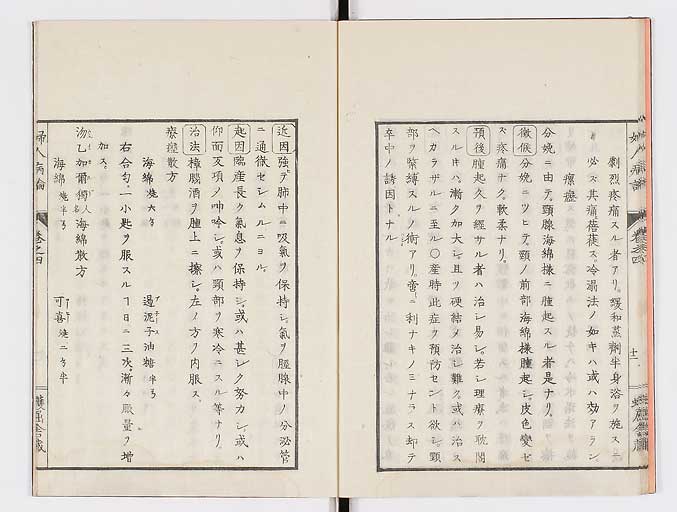 劇烈疼痛スル者アリ。緩和蒸劑半身浴ヲ施スニ
必ス其痛蓓蓰ス。冷溻法ノ如キハ或ハ効アラン
瘰癧
分娩ニ由テ。頸腺海綿樣ニ腫起スル者是ナリ。
徴候分娩ニツヒテ。頸ノ前部海綿樣腫起シ。皮色變セ
ス疼痛ナク。軟柔ナリ。
預後腫起久ヲ經サル者ハ治シ易シ。若シ理療ヲ
スルキハ。漸ク加大シ。且ツ硬結メ治シ難ク。或ハ治ス
ヘカラザルニ至ル〇産時此症ヲ預防セント欲シ。頸
部ヲ緊縛スルノ術アリ。啻ニ利ナキノミナラス却テ
卒中ノ誘因トナル
近因強ヲ肺中ニ吸氣ヲ保持シ。氣ヲ腺中ノ分泌管
ニ通徹セシムルニヨル。
起因臨産長ク氣息ヲ保持シ。或ハ甚シク努力シ。或ハ
仰而反項ノ呻吟シ。或ハ頸部ヲ寒冷ニスル等ナリ。
治法樟腦酒ヲ腫上ニ擦シ。左ノ方ヲ内服ス。
療癭散方
海綿燒六 邊泥子油糖半
右合匀。一小匙ヲ服スル 1日ニ三次。漸々厥量ヲ增
加ス。
沕乙加爾獨人名海綿散方
海綿燒半 可喜燒二半
婦人病論
卷之四